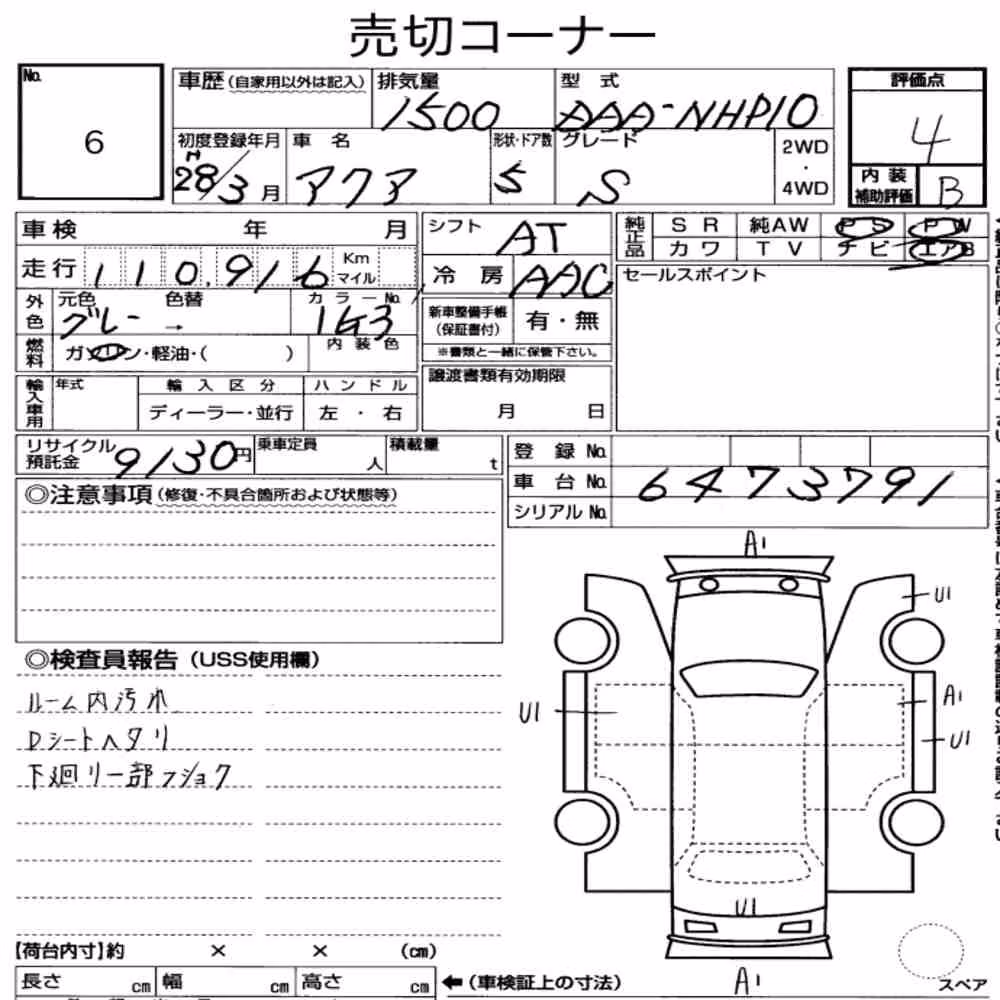 売切コーナー
No. 6
車歴(自家用以外は記入) 排気量 1500 型式 DAA-NHP10
初度登録年月 H28/3月 車名 アクア 形状・ドア数 5 グレード S 2WD・4WD
評価点 4
内装補助評価 B
車検 年 月
走行 110,916 Km マイル
外色 元色 グレー → 色替 カラーNo. 1G3
燃料 ガソリン・軽油・( ) 内装色
輸入車用 年式 輸入区分 ディーラー・並行 ハンドル 左・右
シフト AT
冷房 AAC
新車整備手帳(保証書付) 有・無
※書類と一緒に保管下さい。
譲渡書類有効期限
月 日
純正品 SR 純AW PS PW
カワ TV ナビ エアB
セールスポイント
リサイクル預託金 9130円 乗車定員 人 積載量 t
登録No.
車台No. 6473791
シリアルNo.
◎注意事項(修復・不具合箇所および状態等)
◎検査員報告(USS使用欄)
ルーム内汚れ
Dシートヘタリ
下廻リ一部フショク
A1
U1
U1
A1
U1
U1
A1
スペア
【荷台内寸】約 × × (cm)
長さ cm 幅 cm 高さ cm ←(車検証上の寸法)